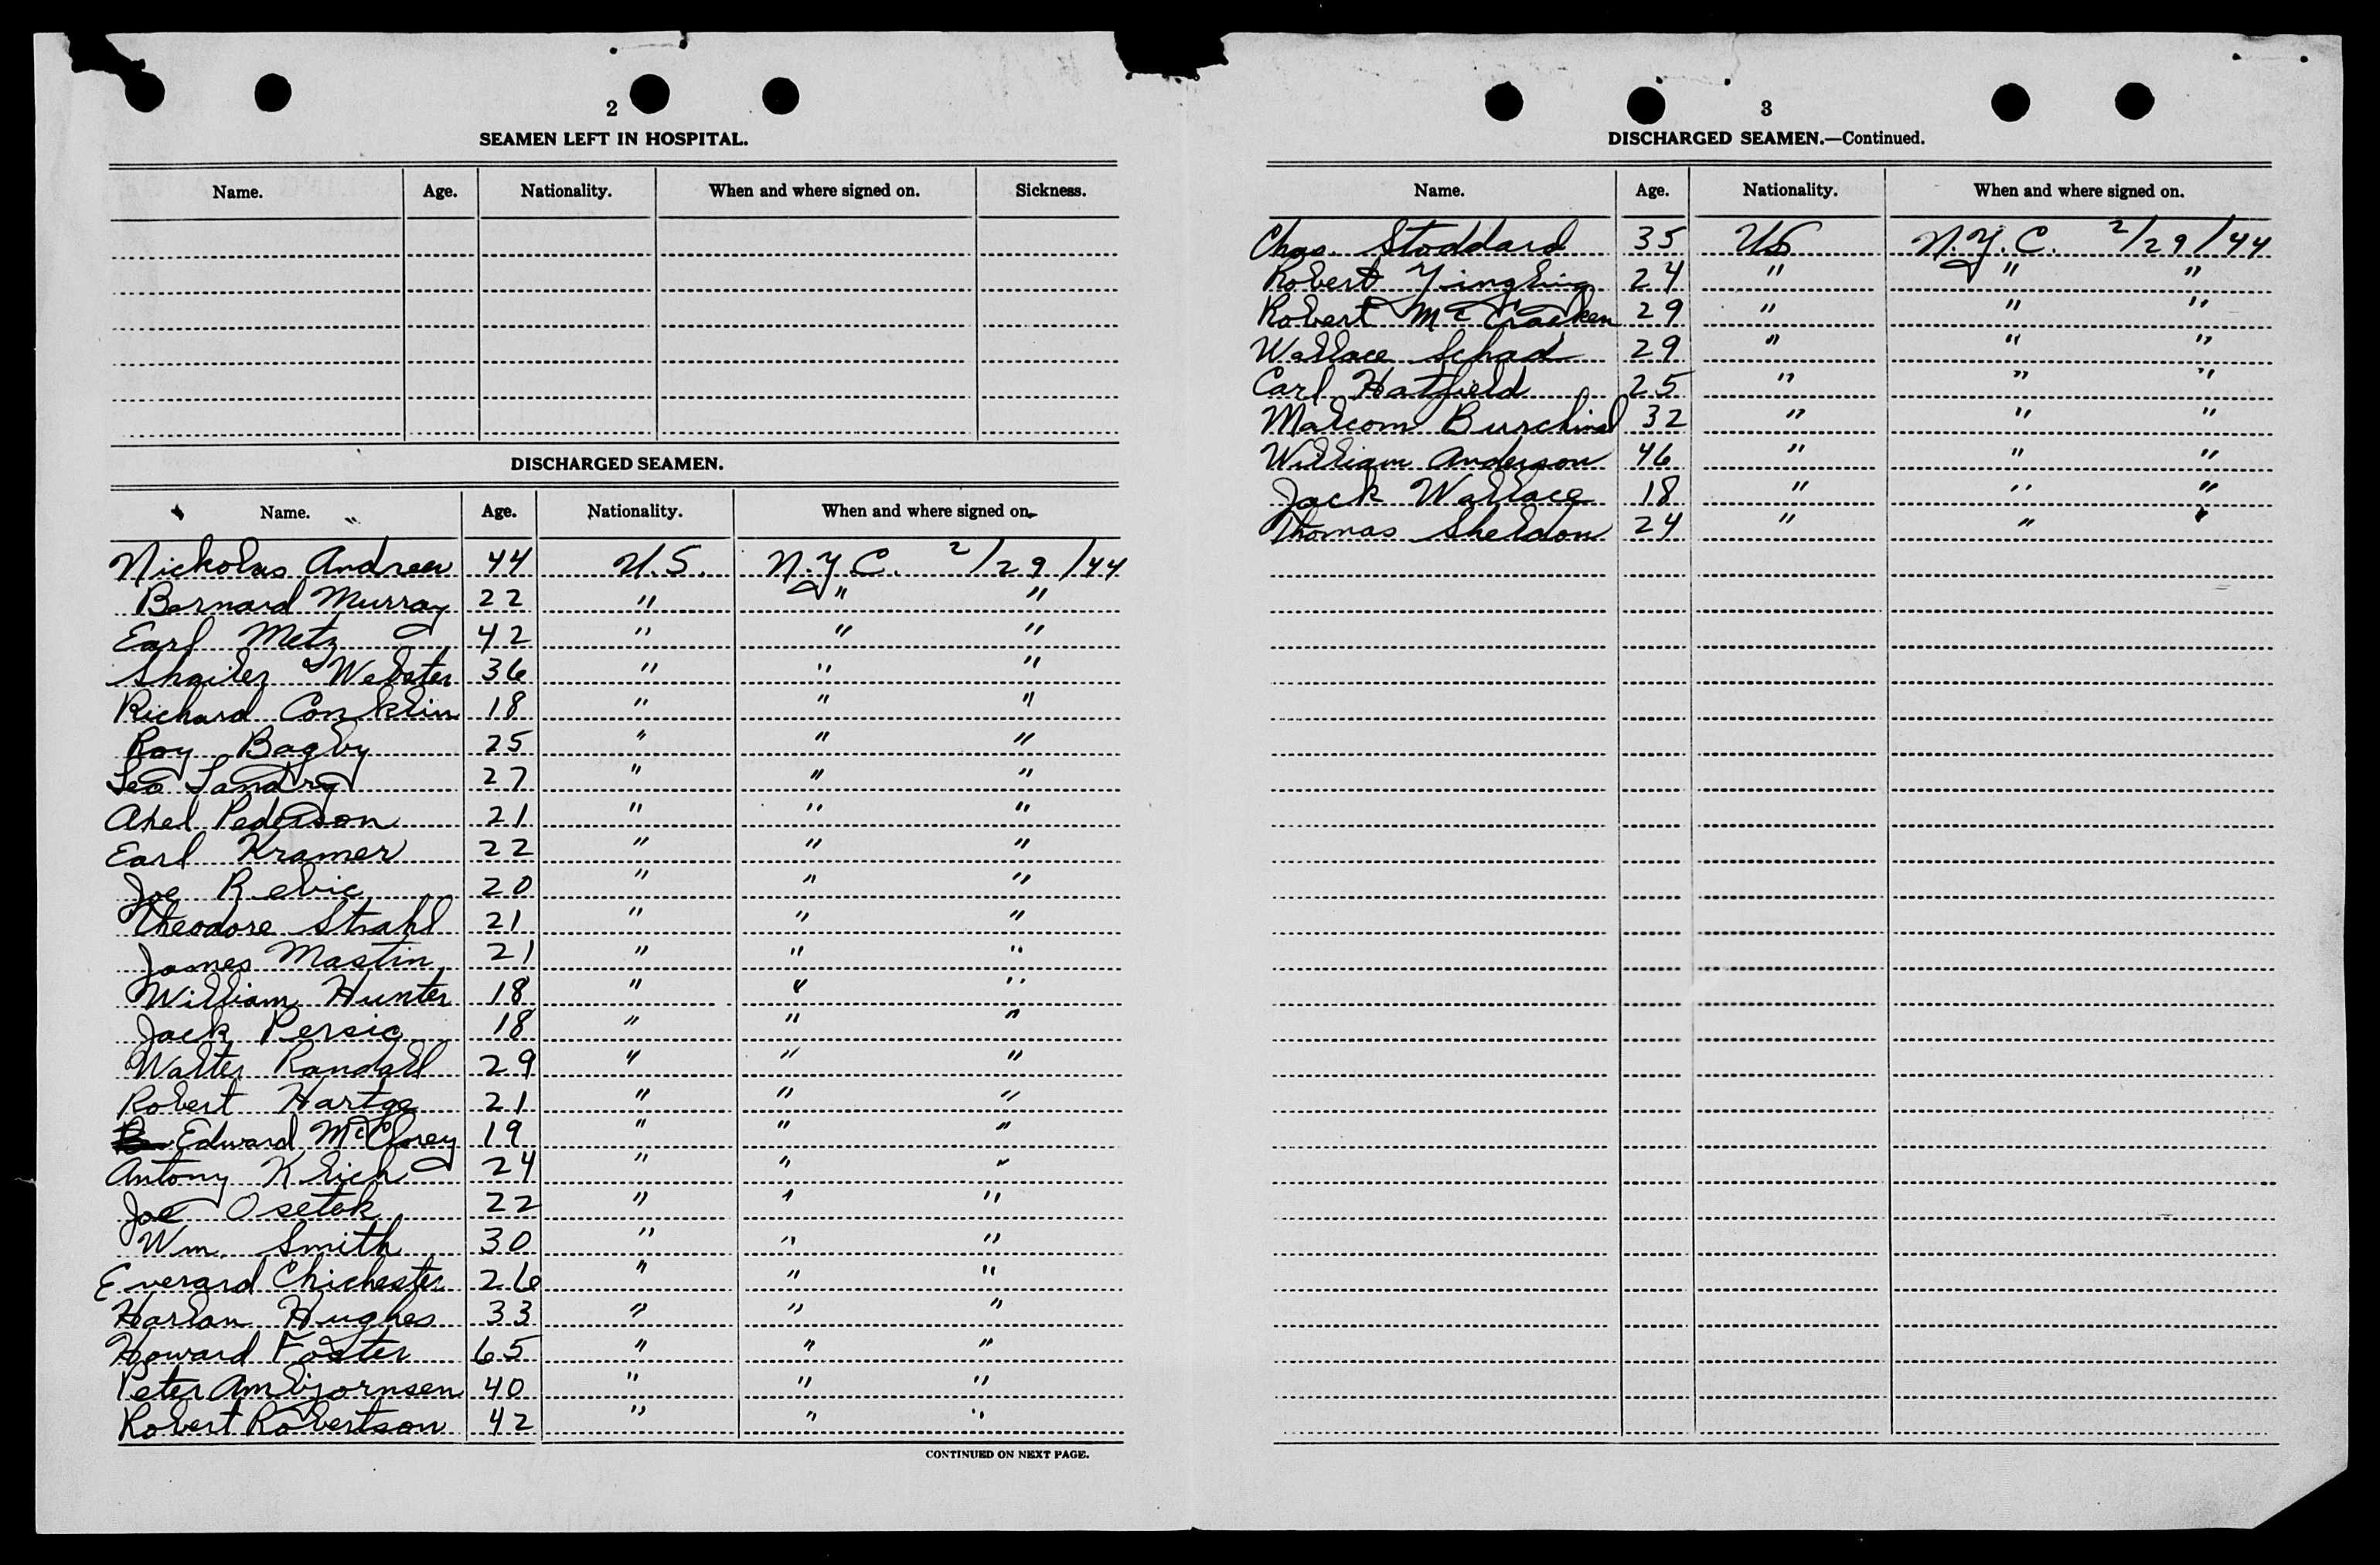 2
SEAMEN LEFT IN HOSPITAL.
Name. Age. Nationality. When and where signed on. Sickness.
DISCHARGED SEAMEN.
Name. Age. Nationality. When and where signed on.
Nickolas Andreer 44 U.S. N.Y.C. 2/29/44
Bernard Murray 22 " " "
Earl Metz 42 " " "
Shailer Webster 36 " " "
Richard Conklin 18 " " "
Roy Bagby 25 " " "
Leo Landry 27 " " "
Axel Pederson 21 " " "
Earl Kramer 22 " " "
Joe Relvic 20 " " "
Theodore Strahl 21 " " "
James Mastin 21 " " "
William Hunter 18 " " "
Jack Persic 18 " " "
Walter Randall 29 " " "
Robert Hartge 21 " " "
Edward McClorey 19 " " "
Antony Klich 24 " " "
Joe Osetek 22 " " "
Wm. Smith 30 " " "
Everard Chichester 26 " " "
Harlan Hughes 33 " " "
Howard Foster 65 " " "
Peter Ambjornsen 40 " " "
Robert Robertson 42 " " "
CONTINUED ON NEXT PAGE.
3
DISCHARGED SEAMEN.—Continued.
Name. Age. Nationality. When and where signed on.
Chas. Stoddard 35 US N.Y.C. 2/29/44
Robert Yingling 24 " " "
Robert McCracken 29 " " "
Wallace Schad 29 " " "
Carl Hatfield 25 " " "
Malcom Burchinal 32 " " "
William Anderson 46 " " "
Jack Wallace 18 " " "
Thomas Sheldon 24 " " "